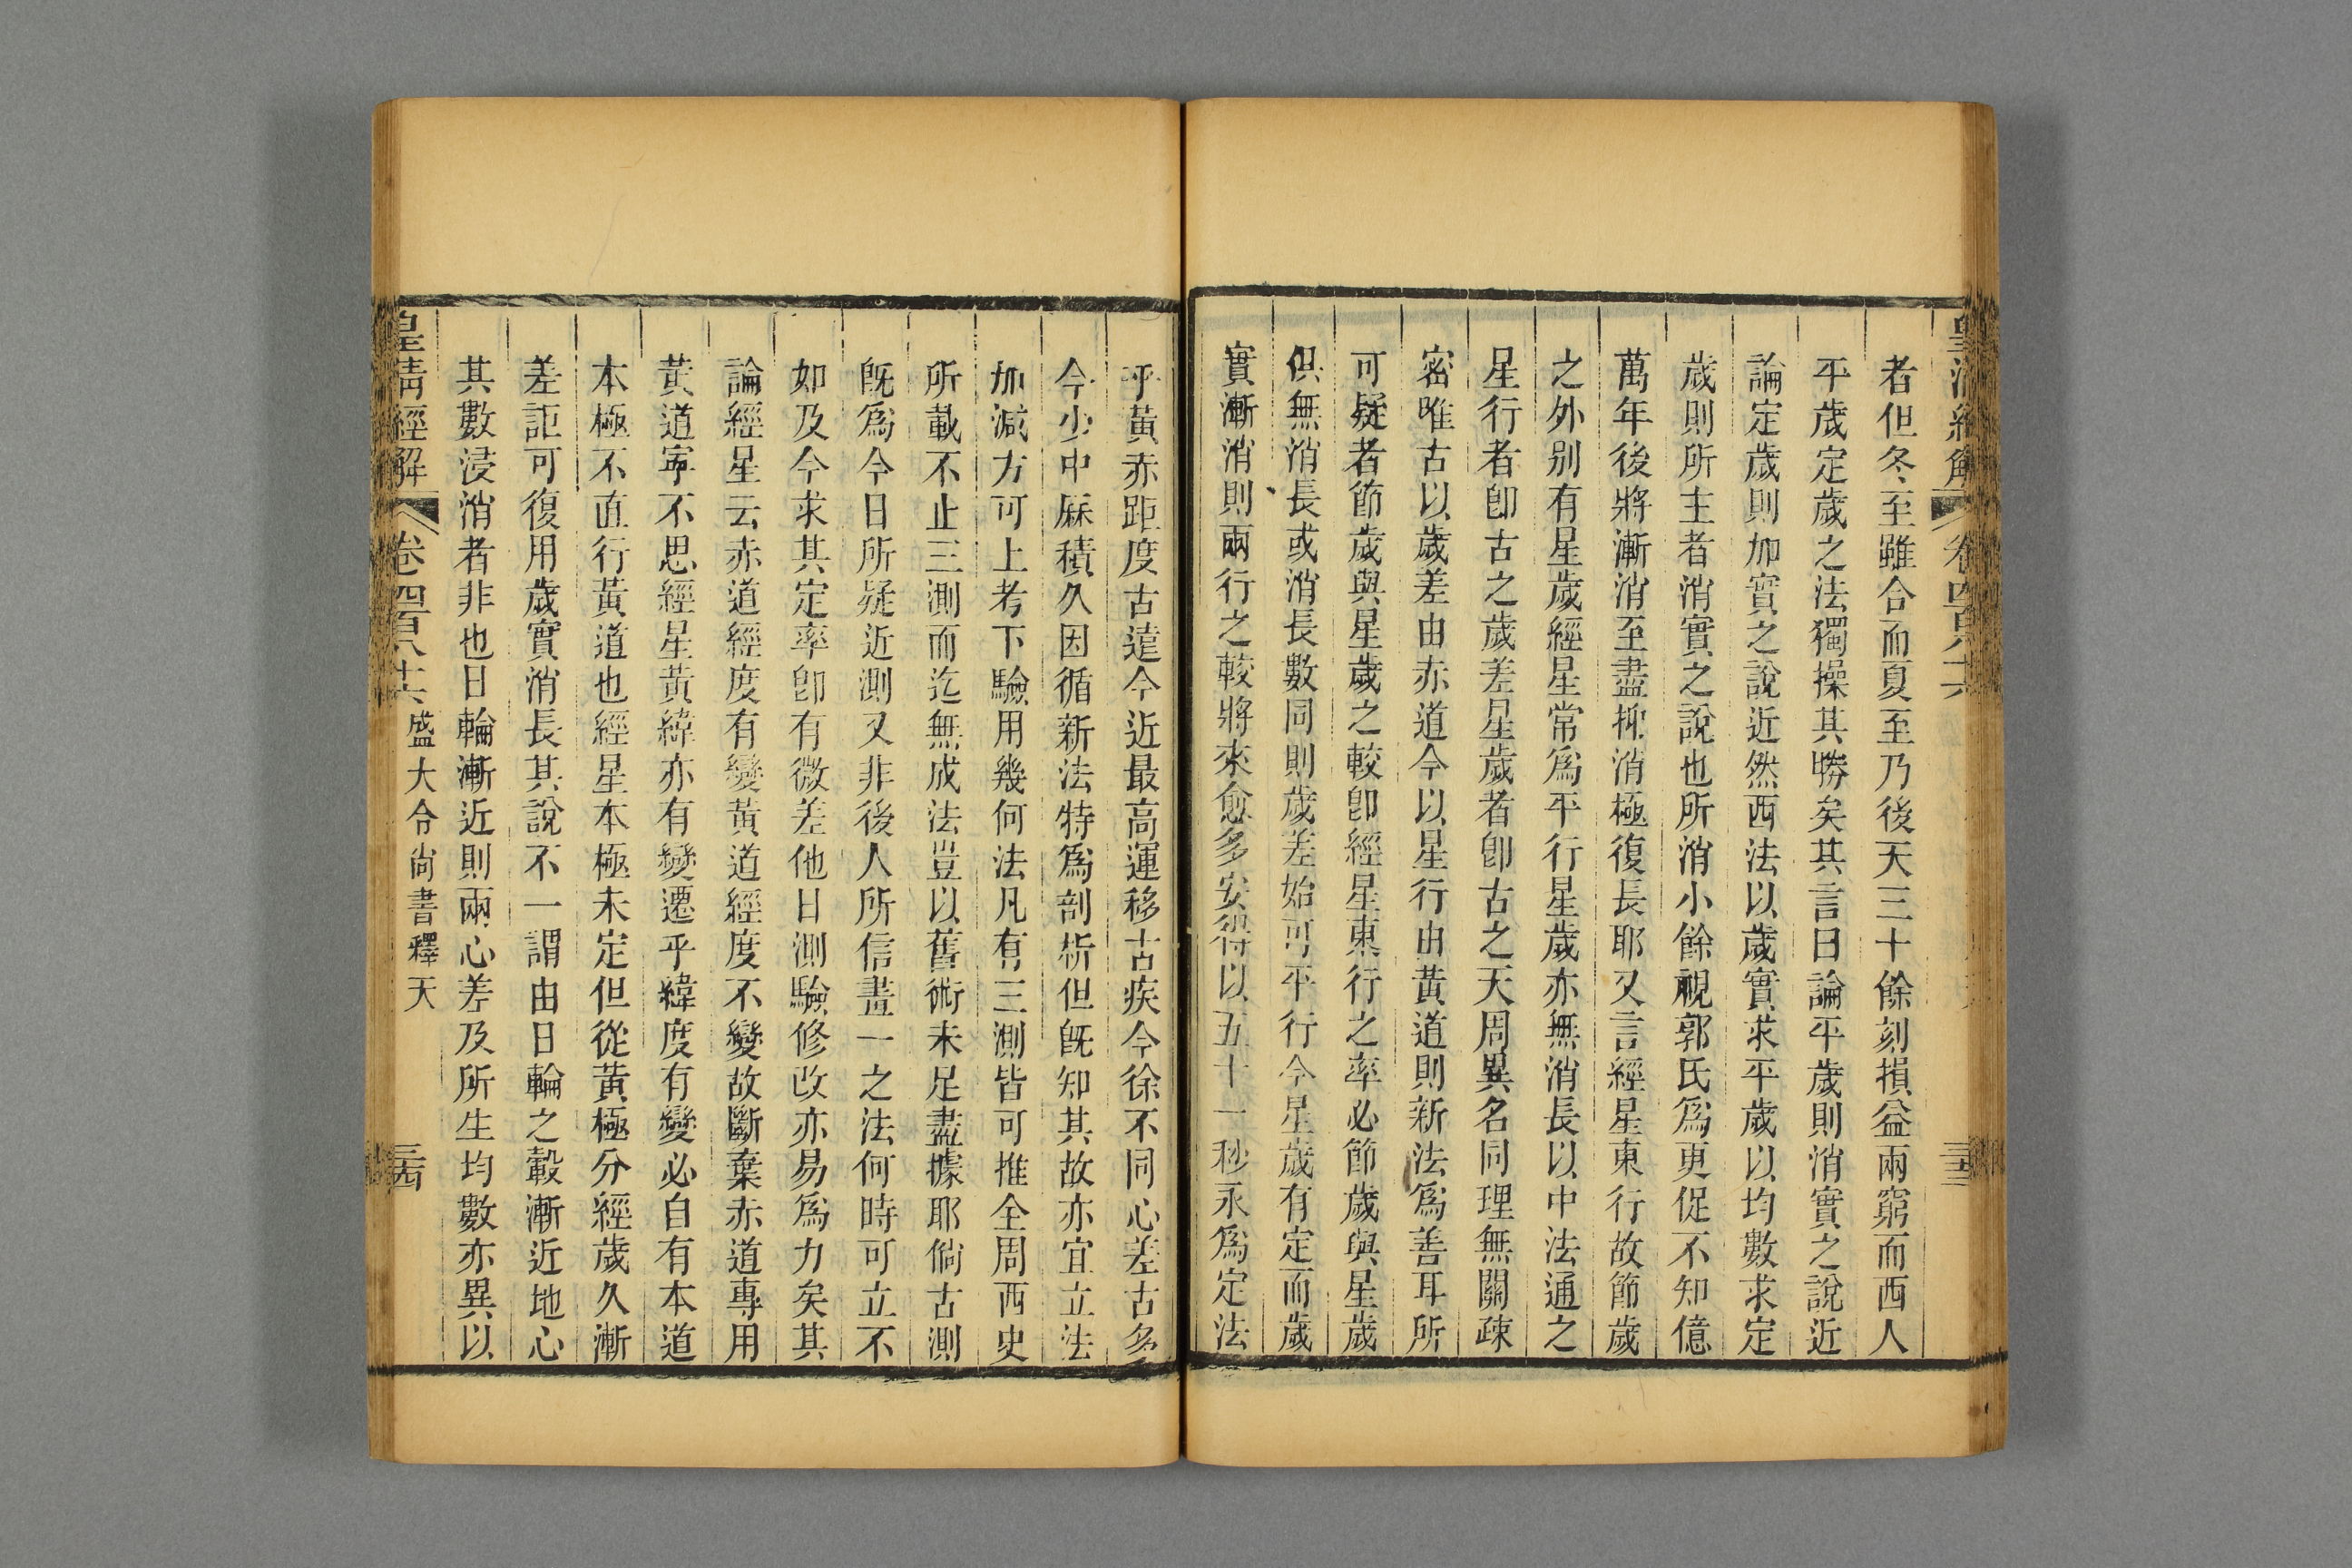 皇清經解 卷四百八十六 三十三
者但冬至雖合而夏至乃後天三十餘刻損益兩窮而西人
平歲定歲之法獨操其勝矣其言曰論平歲則消實之說近
論定歲則加實之說近然西法以歲實求平歲以均數求定
歲則所主者消實之說也所消小餘視郭氏爲更促不知億
萬年後將漸消至盡抑消極復長耶又言經星東行故節歲
之外别有星歲經星常爲平行星歲亦無消長以中法通之
星行者卽古之歲差星歲者卽古之天周異名同理無關疎
密唯古以歲差由赤道今以星行由黃道則新法爲善耳所
可疑者節歲與星歲之較卽經星東行之率必節歲與星歲
俱無消長或消長數同則歲差始可平行今星歲有定而歲
實漸消則兩行之較將來愈多安得以五十一秒永爲定法
乎黃赤距度古遠今近最高運移古疾今徐不同心差古多
今少中厤積久因循新法特爲剖析但旣知其故亦宜立法
加減方可上考下驗用幾何法凡有三測皆可推全周西史
所載不止三測而迄無成法豈以舊術未足盡據耶倘古測
旣爲今日所疑近測又非後人所信畫一之法何時可立不
如及今求其定率卽有微差他日測驗修改亦易爲力矣其
論經星云赤道經度有變黃道經度不變故斷棄赤道專用
黃道寧不思經星黃緯亦有變遷乎緯度有變必自有本道
本極不直行黃道也經星本極未定但從黃極分經歲久漸
差詎可復用歲實消長其說不一謂由日輪之轂漸近地心
其數浸消者非也日輪漸近則兩心差及所生均數亦異以
皇清經解 卷四百八十六 盛大令尙書釋天 三十四